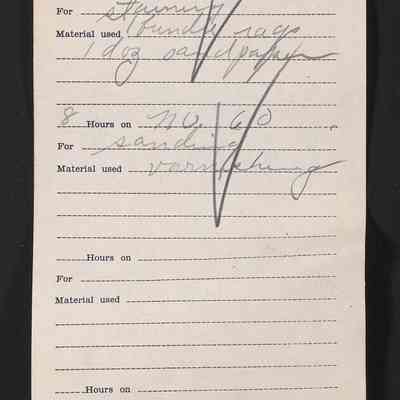 For staining
Material used 1 bundle rags
1 doz sandpaper
8 Hours on No. 60.
For sanding
Material used varnishing
Hours on
For
Material used
Hours on